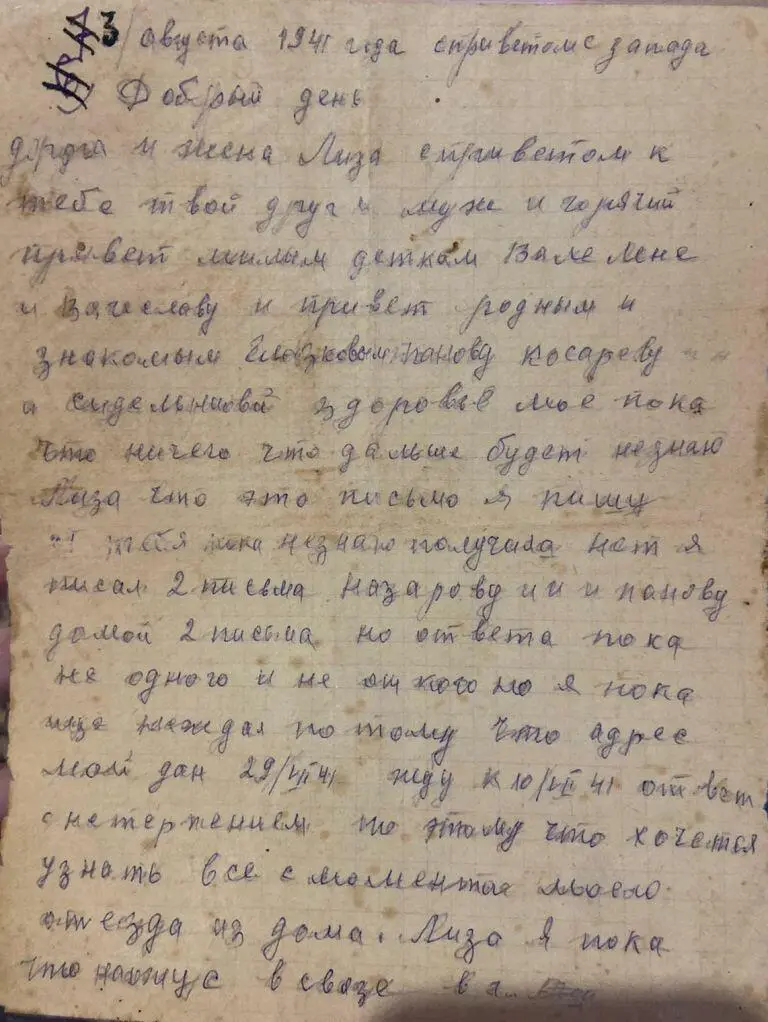 3/августа 1941 года с приветом с запада
Добрый день
дорога и жена Лиза с приветом к
тебе твой друг и муж и горячий
привет милым деткам Вале Лене
и Вячеславу и привет родным и
знакомым Глазковым панову косареву
и сидельниовой здоровье мое пока
что ничего что дальше будет незнаю
Лиза что это письмо я пишу
тебя пока незнаю получила нет я
писал 2 письма Назарову и и панову
домой 2 письма но ответа пока
не одного и не от кого но я пока
еще неждал по тому что адрес
мой дан 29/VII 41 жду к 10/VIII 41 ответ
с нетержением по этому что хочется
узнать все с момента моего
отезда из дома. Лиза я пока
что нахжус в связе в